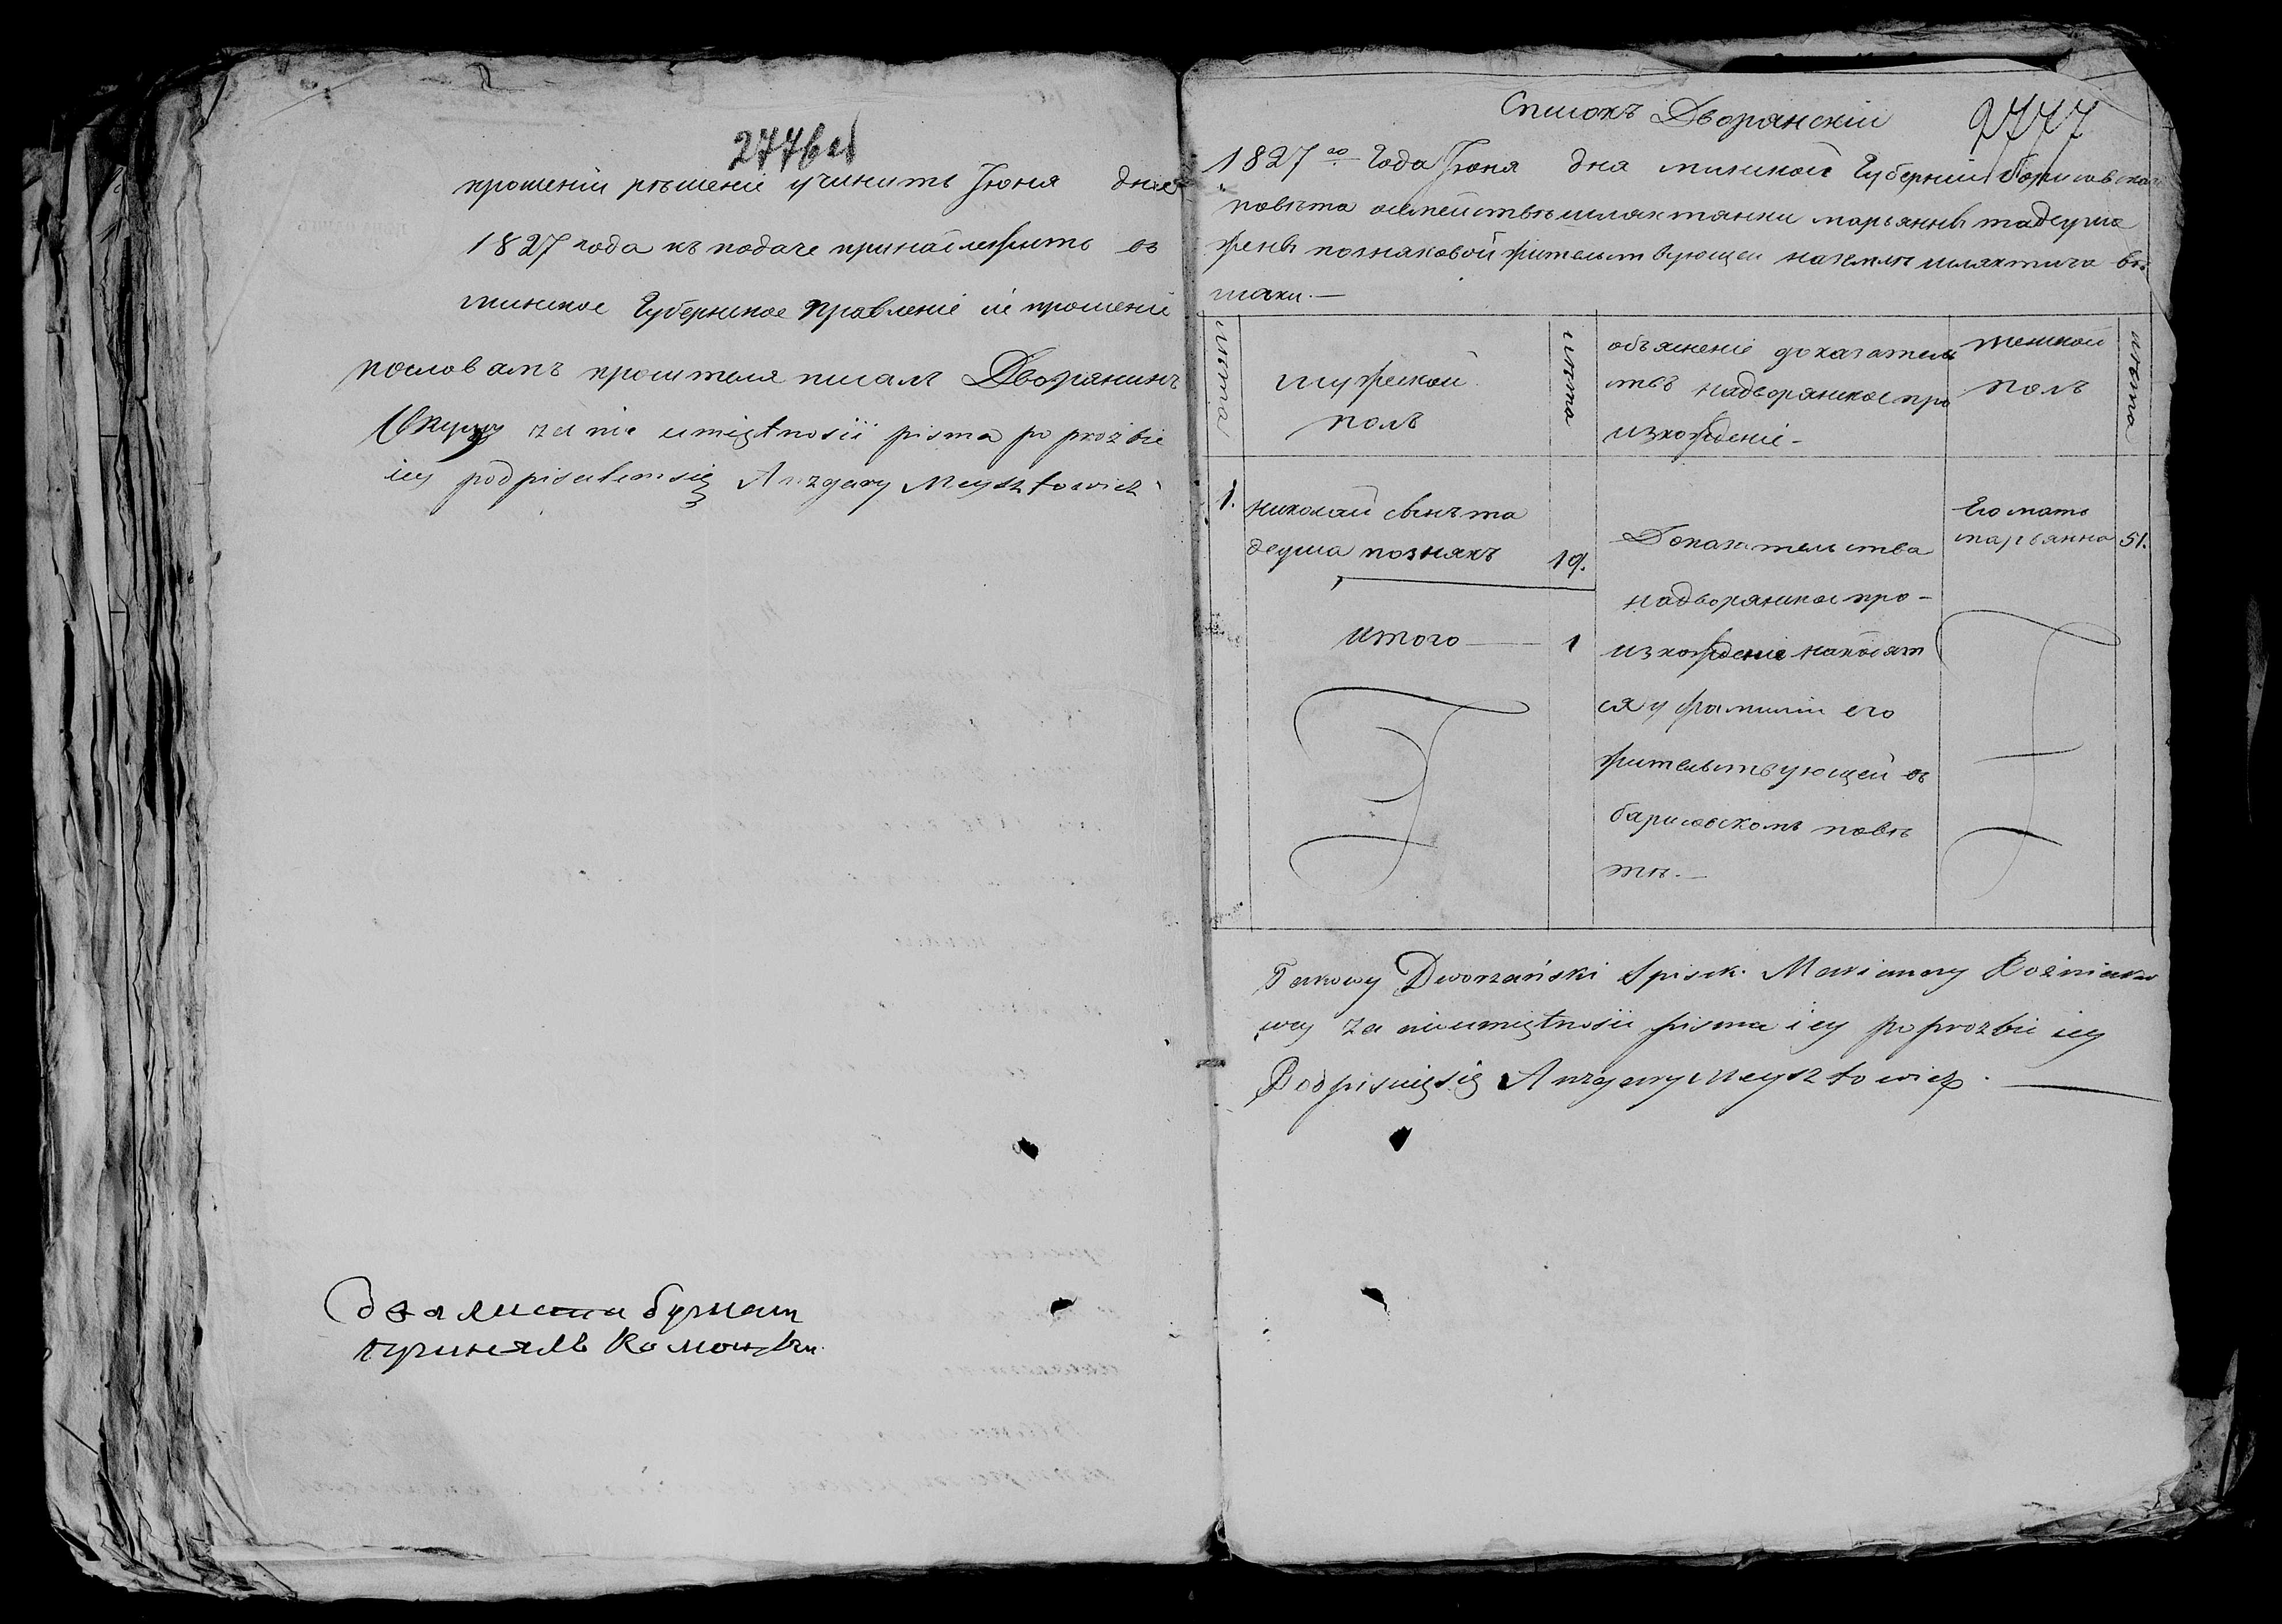 2776 об
прошеніи рѣшеніе учинить Іюня дня
1827 года къ подаче принадлежитъ въ
минское Губернское правленіе сіе прошеніе
пословамъ просителя писалъ Дворянинъ
za nie umiętnosii pisma po proźbie
iey podpisalem się Anzgary Meysztowicz
два листа бумаги
принялъ
Списокъ Дворянскій
2777
1827го Года Іюня дня минской Губерніи Борисовскаго
повѣта осемействѣ шляхтянки марьянны тадеуша
жены позняковой жительствующей на землѣ шляхтича
1. лѣта
мужеской
полъ
лѣта
объясненіе доказатель
твъ надворянское про
изхожденіе-
женской
полъ
лѣта
1. николай сынъ та
деуша познякъ 19.
итого — 1
Доказательства
надворянское про-
изхожденіе находят
ся у фамиліи его
жительствующей въ
барисовскомъ повѣ
тѣ.—
Его мать
марьянна 51.
Takowy Dworzański Spisek Marianny Poźniako
wey za nieumiętnosii pisma iey po prozbie iey
Podpisuię się Anzgary Meysztowicz. —